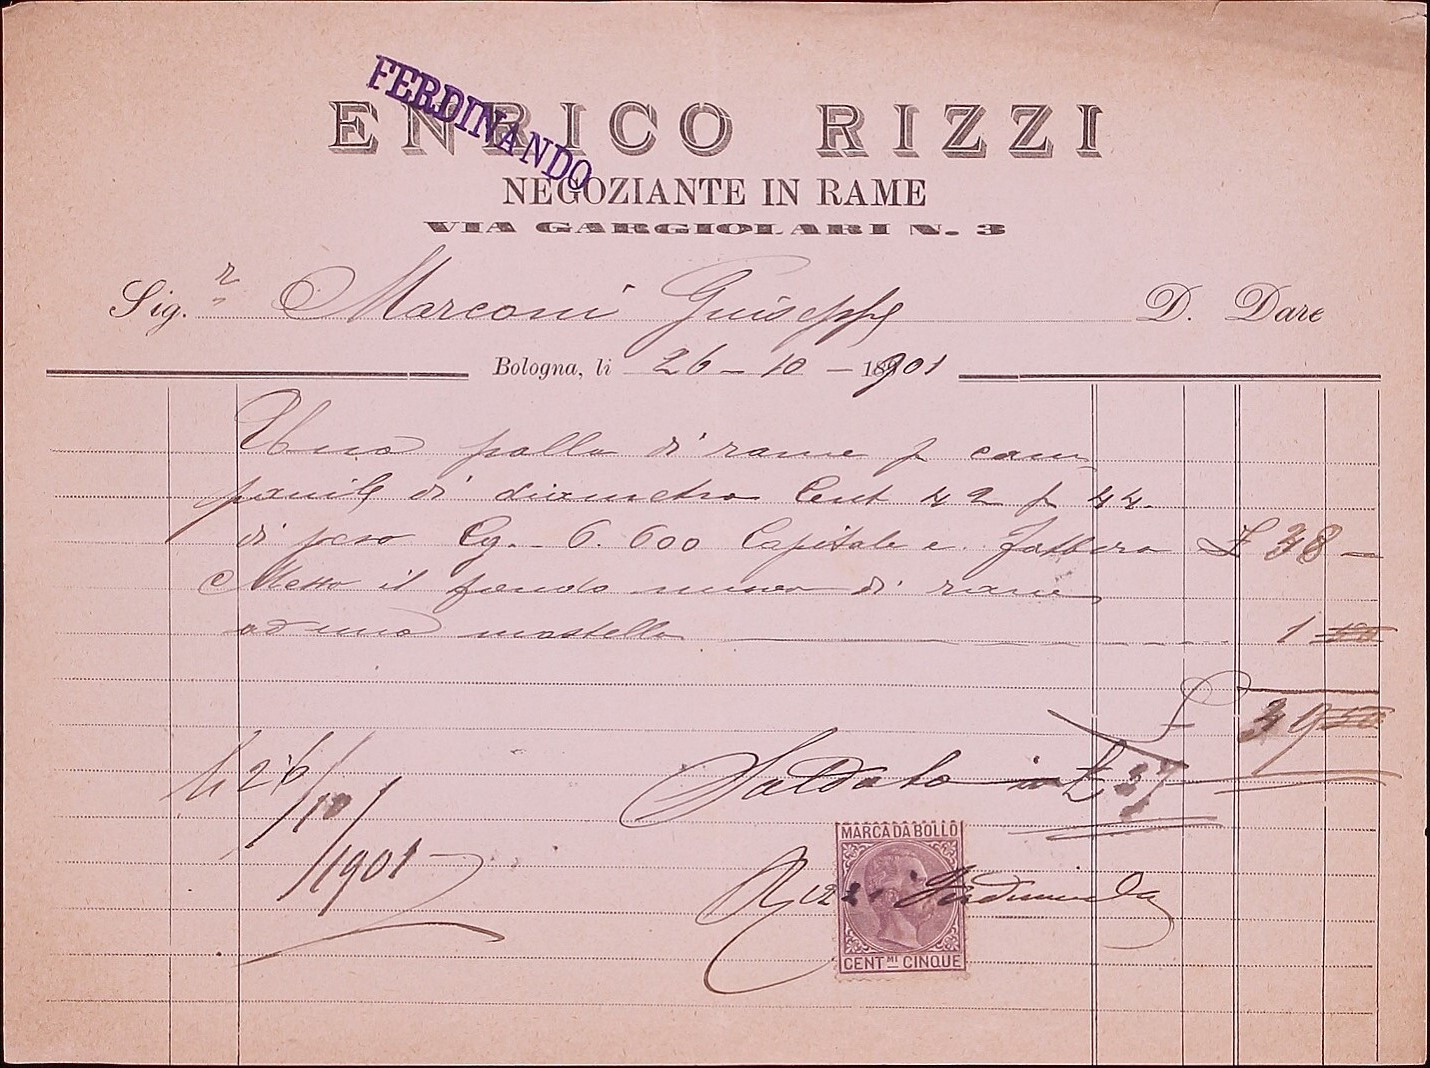 FERDINANDO
ENRICO RIZZI
NEGOZIANTE IN RAME
VIA GARGIOLARI N. 3
Sig.r Marconi Guiseppe D. Dare
Bologna, li 26 - 10 - 18901
Una palla di rame p cam-
panile di diametro Cent 42 p 44.
di peso Cg. - 6.600 Capitale e fattura £ 38 —
Messo il fondo nuovo di rame
ad una mastella 1
£ 39
li 26/10/1901 Saldato in £ 37
MARCA DA BOLLO
Rizzi Ferdinando
CENT.MI CINQUE